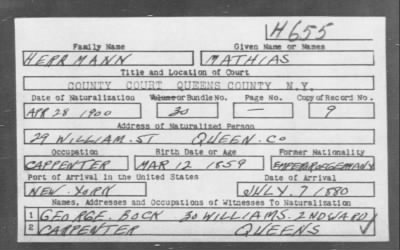 H655
Family Name Given Name or Names
HERRMANN MATHIAS
Title and Location of Court
COUNTY COURT QUEENS COUNTY N.Y.
Date of Naturalization Volume or Bundle No. Page No. Copy of Record No.
APR 28 1900 30 — 9
Address of Naturalized Person
29 WILLIAM. ST QUEEN. CO
Occupation Birth Date or Age Former Nationality
CARPENTER MAR 12 1859 EMPEROR GERMANY
Port of Arrival in the United States Date of Arrival
NEW. YORK JULY. 7 1880
Names, Addresses and Occupations of Witnesses To Naturalization
1 GEORGE. BOCK 30 WILLIAMS. 2ND WARD
2 CARPENTER QUEENS